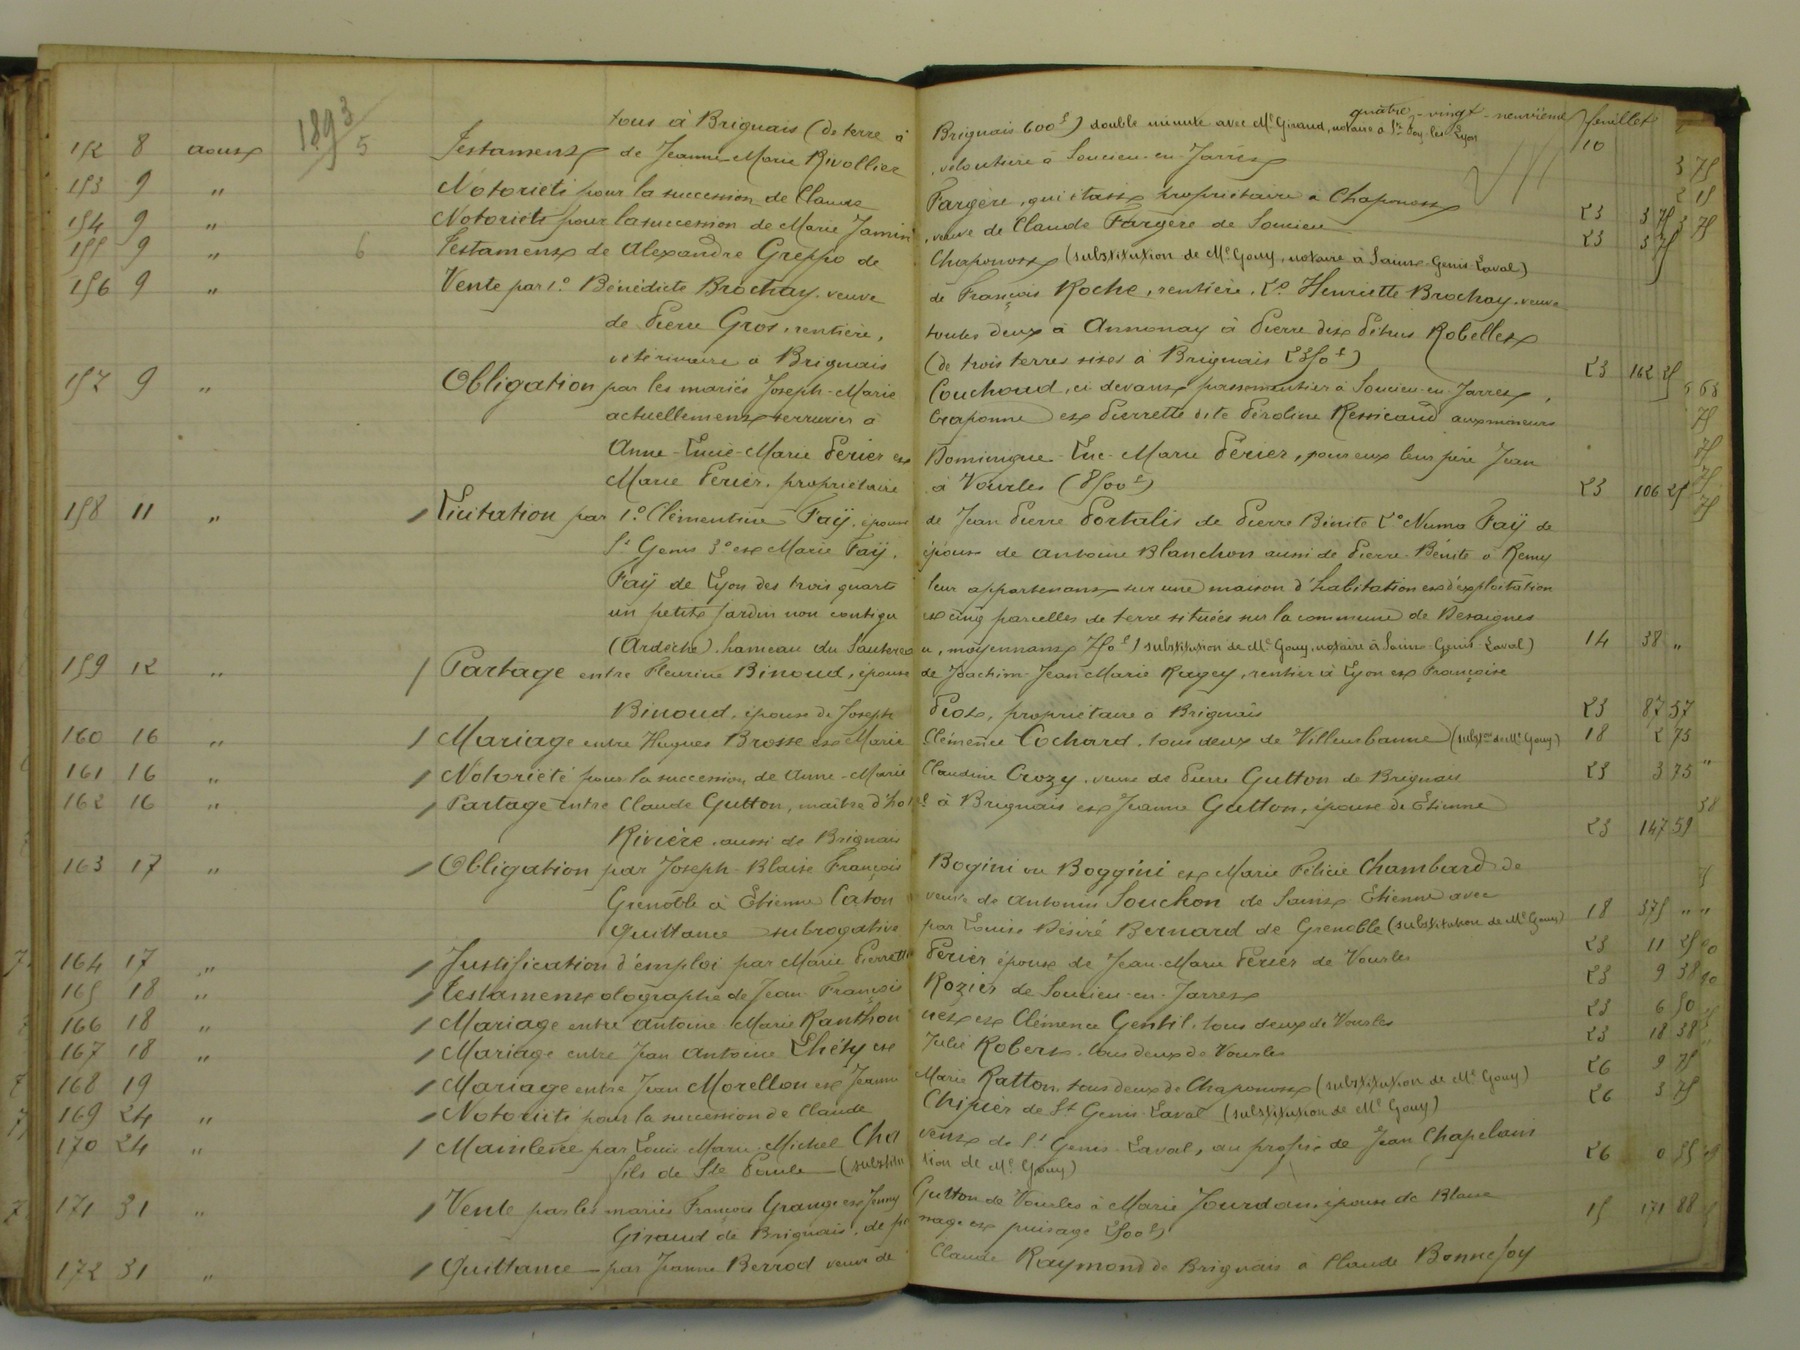 quatre-vingt-neuvième feuillet
1893
tous à Brignais (de terre à Brignais 600f) double minute avec Me Giraud, notaire à Ste Foy-les-Lyon 10
152 8 aoust 5 Testament de Jeanne Marie Rivollier, veloutière à Soucieu-en-Jarrest 3 75
153 9 " Notoriété pour la succession de Claude Fargère, qui était propriétaire à Chaponost 23 3 75
154 9 " Notoriété pour la succession de Marie Jamin, veuve de Claude Fargère de Soucieu 23 3 75
155 9 " 6 Testament de Alexandre Greppo de Chaponost (substitution de Me Gouy, notaire à Saint-Genis-Laval)
156 9 " Vente par 1o Bénédicte Brochay, veuve de François Roche, rentière, 2o Henriette Brochay, veuve
de Pierre Gros, rentière, toutes deux à Annonay à Pierre dit Pétrus Robellet
vétérinaire à Brignais (de trois terres sises à Brignais 2350f) 23 162 25
157 9 " Obligation par les mariés Joseph-Marie Couchoud, ci devant passementier à Soucieu-en-Jarrest,
actuellement serrurier à Craponne et Pierrette dite Péroline Ressicaud aux mineurs
Anne-Lucie-Marie Périer et Dominique-Luc-Marie Périer, pour eux leur père Jean
Marie Périer, propriétaire à Vourles (8500f) 23 106 25
158 11 " Licitation par 1o Clémentine Faÿ, épouse de Jean Pierre Portalis de Pierre Bénite 2o Numa Faÿ de
St Genis 3o et Marie Faÿ, épouse de Antoine Blanchon aussi de Pierre-Bénite à Remy
Faÿ de Lyon des trois quarts leur appartenant sur une maison d'habitation et d'exploitation
un petit jardin non contigu et cinq parcelles de terre situées sur la commune de Desaignes
(Ardèche), hameau du Sautereau, moyennant 750f (substitution de Me Gouy, notaire à Saint-Genis-Laval) 14 38 "
159 12 " Partage entre Fleurine Binoud, épouse de Joachim-Jean Marie Ragey, rentier à Lyon et Françoise
Binoud, épouse de Joseph Piot, propriétaire à Brignais 23 87 57
160 16 " Mariage entre Hugues Brosse et Marie Clémence Cochard, tous deux de Villeurbanne (subson de Me Gouy) 18 2 75
161 16 " Notoriété pour la succession de Anne-Marie Claudine Crozy, veuve de Pierre Gutton de Brignais 23 3 75
162 16 " Partage entre Claude Gutton, maître d'hotel à Brignais et Jeanne Gutton, épouse de Etienne
Rivière, aussi de Brignais 23 147 59
163 17 " Obligation par Joseph-Blaise François Bogini ou Boggini et Marie Félicie Chambard de
Grenoble à Etienne Caton veuve de Antonin Souchon de Saint Etienne avec
Quittance subrogative par Louis Désiré Bernard de Grenoble (substitution de Me Gouy) 18 375 "
164 17 " Justification d'emploi par Marie Pierrette Périer épouse de Jean-Marie Périer de Vourles 23 11 25
165 18 " Testament olographe de Jean-François Rozier de Soucieu-en-Jarrest 23 9 38
166 18 " Mariage entre Antoine Marie Ranthonnet et Clémence Gentil, tous deux de Vourles 23 6 50
167 18 " Mariage entre Jean Antoine Lhéty et Julie Robert, tous deux de Vourles 23 18 38
168 19 " Mariage entre Jean Morellon et Jeanne Marie Ratton, tous deux de Chaponost (substitution de Me Gouy) 26 9 75
169 24 " Notoriété pour la succession de Claude Chipier de St Genis-Laval (substitution de Me Gouy) 26 3 75
170 24 " Mainlevée par Louis Marie-Michel Chatvent de St Genis-Laval, au profit de Jean Chapelain
fils de Ste Paule (substitution de Me Gouy) 26 0 55
171 31 " Vente par les mariés François Grange et Jenny Gutton de Vourles à Marie Jourdan, épouse de Blaise
Giraud de Brignais, de passage et puisage 2500f) 15 171 88
172 31 " Quittance par Jeanne Berrod veuve de Claude Raymond de Brignais à Claude Bonnefoy